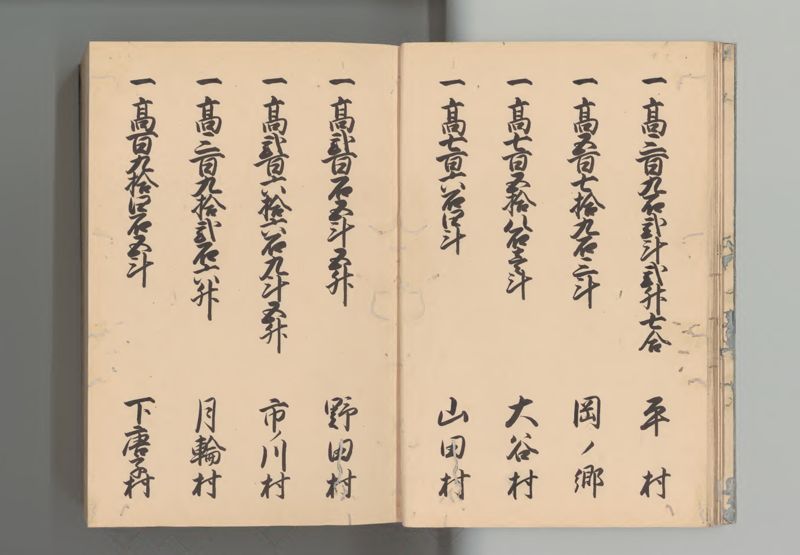 一高三百九石弐斗弐升七合 平村
一高五百七拾九石三斗 岡ノ郷
一高七百五拾八石三斗 大谷村
一高七百六石四斗 山田村
一高弐百石五斗五升 野田村
一高弐百六拾六石九斗五升 市ノ川村
一高三百九拾弐石六升 月輪村
一高百九拾四石五斗 下唐子村